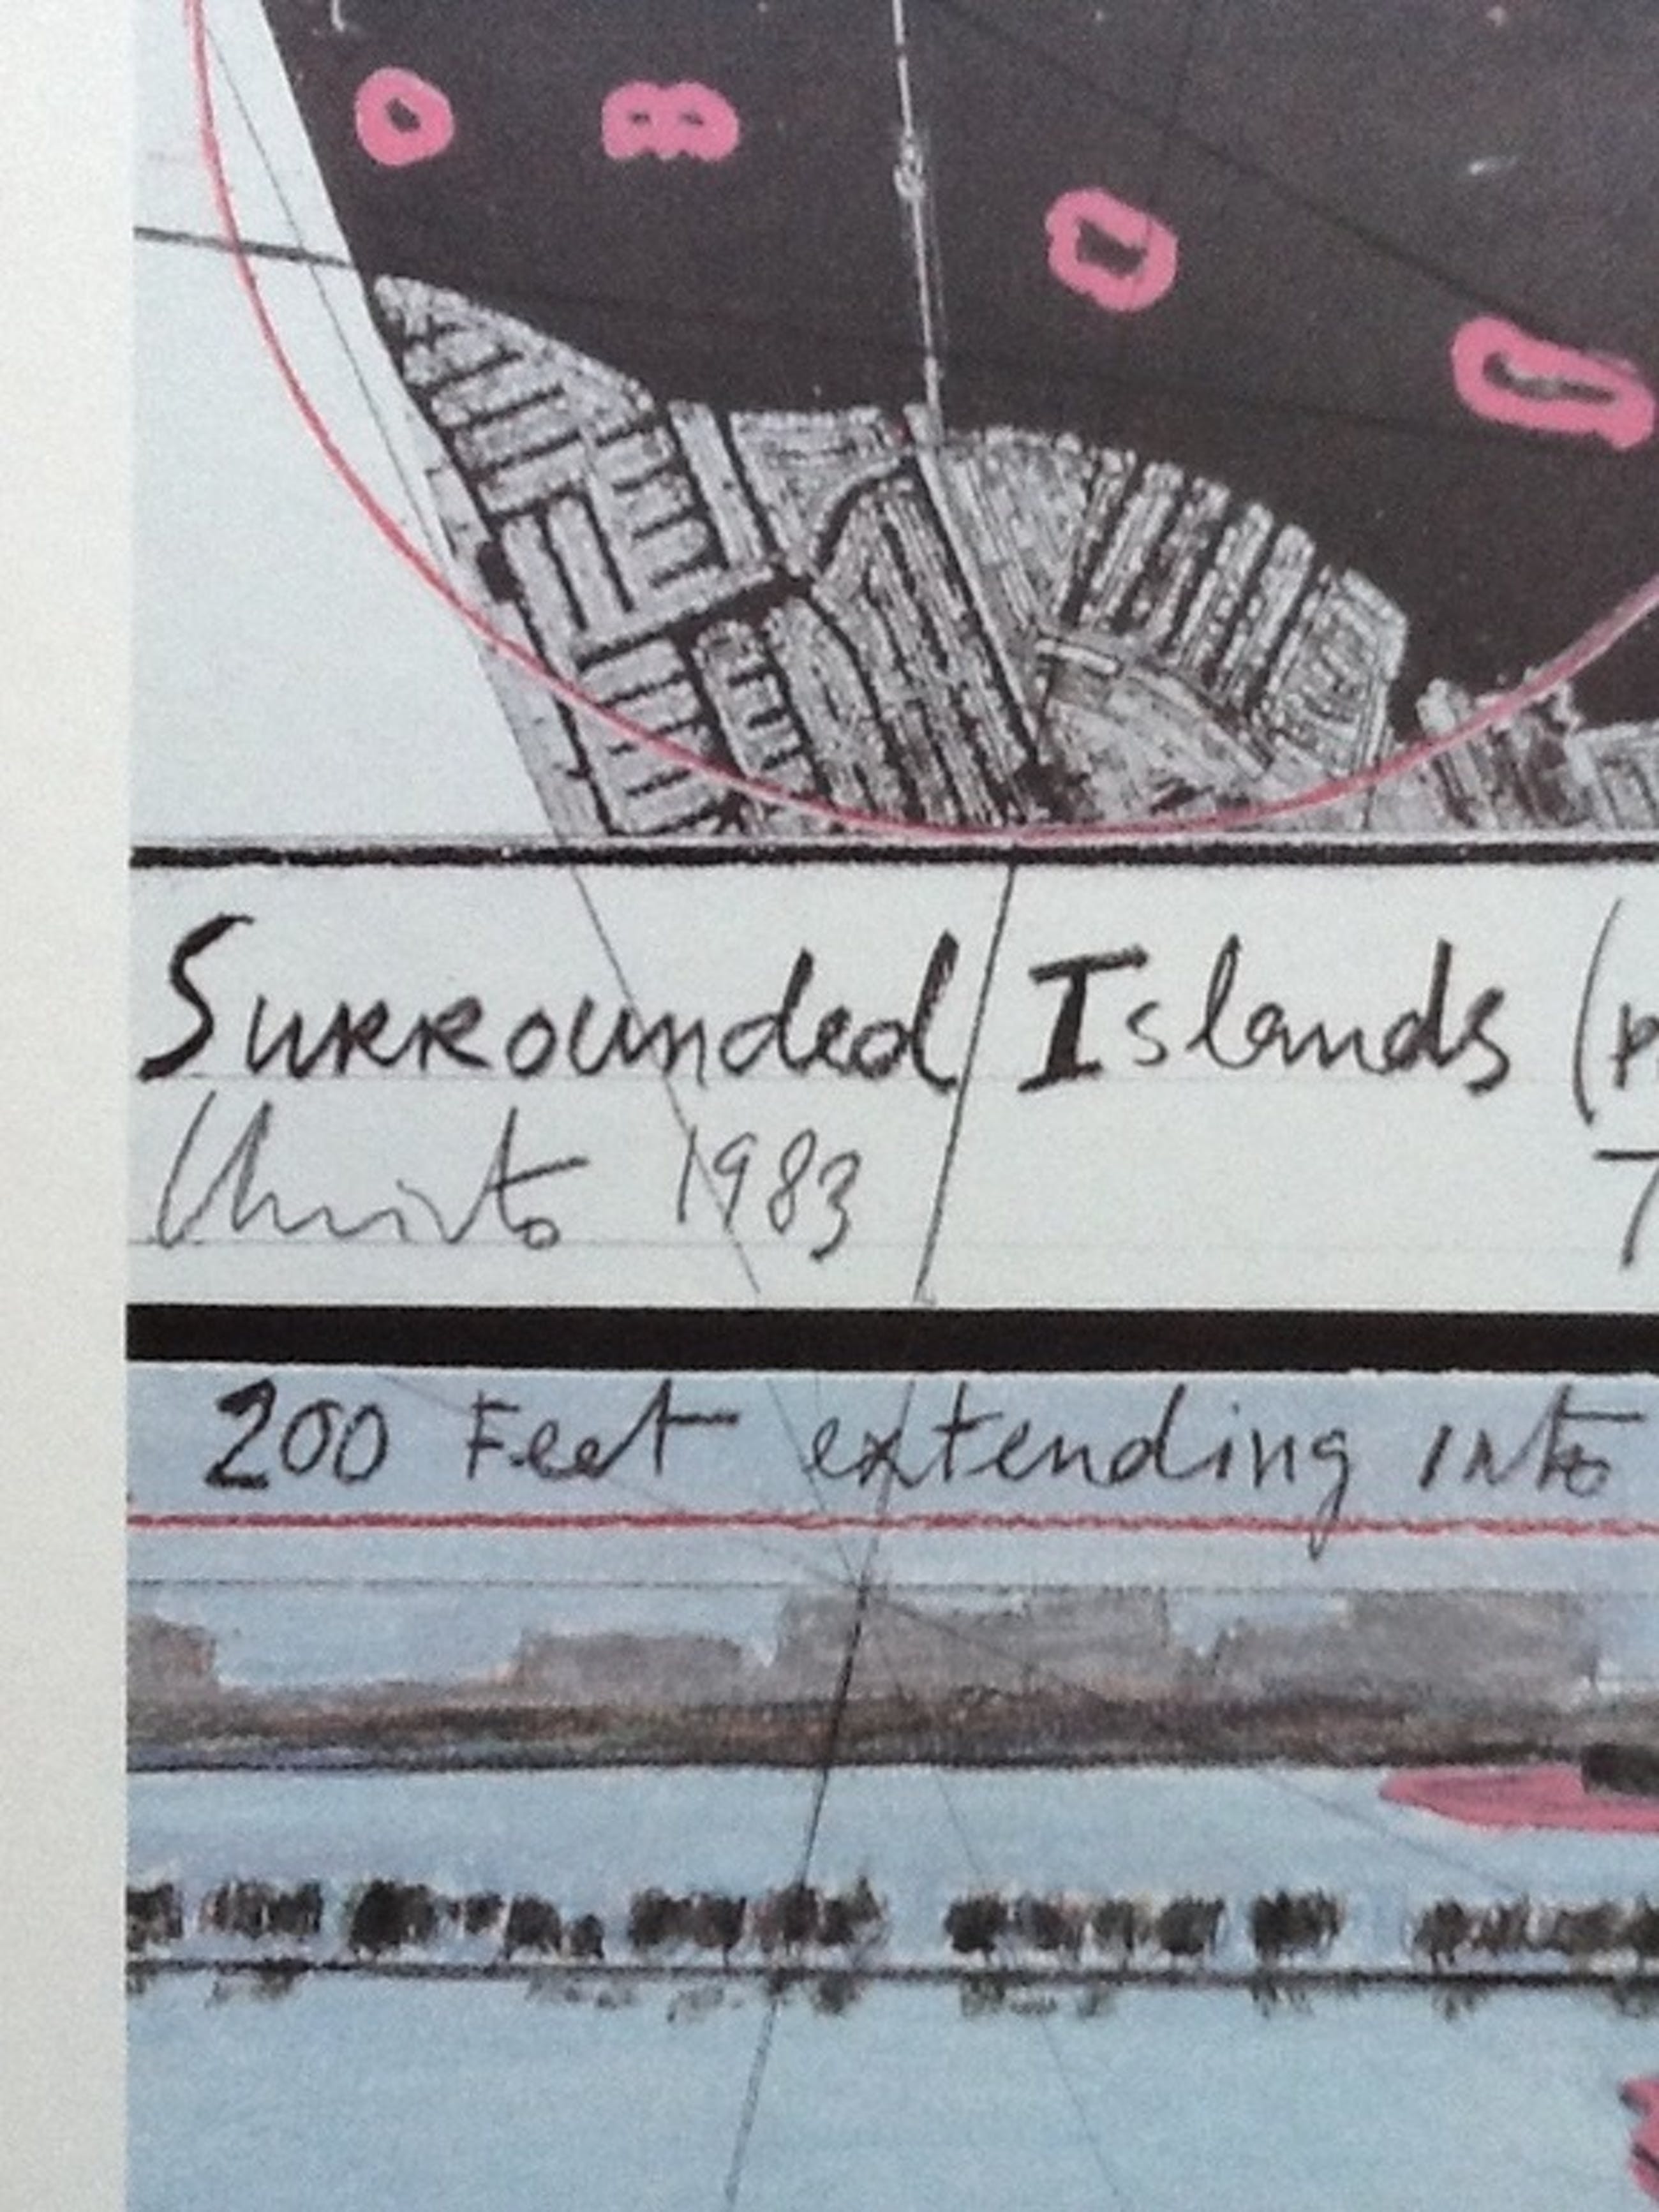 Surrounded Islands (
Christo 1983
200 Feet extending into